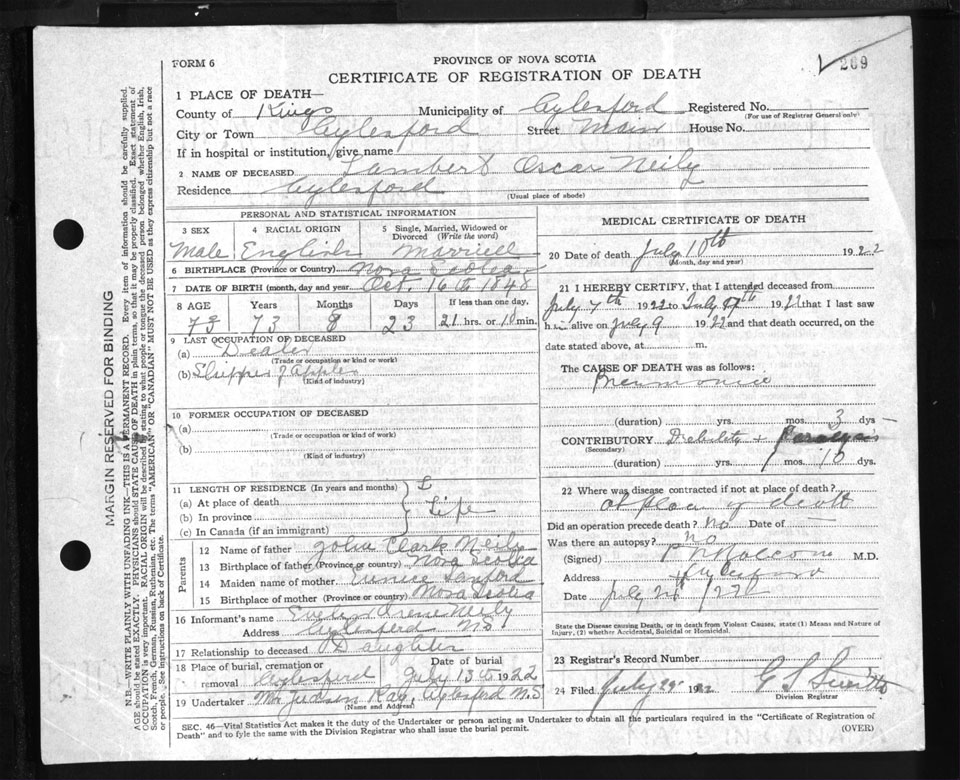 ✓ 269
FORM 6
PROVINCE OF NOVA SCOTIA
CERTIFICATE OF REGISTRATION OF DEATH
1 PLACE OF DEATH—
County of Kings Municipality of Aylesford Registered No.
(For use of Registrar General only)
City or Town Aylesford Street Main House No.
If in hospital or institution, give name
2 NAME OF DECEASED Lambert Oscar Neily
Residence Aylesford
(Usual place of abode)
PERSONAL AND STATISTICAL INFORMATION
3 SEX
Male
4 RACIAL ORIGIN
English
5 Single, Married, Widowed or Divorced (Write the word)
Married
6 BIRTHPLACE (Province or Country) Nova Scotia
7 DATE OF BIRTH (month, day and year) Oct. 16th 1848
8 AGE Years Months Days If less than one day,
73 73 8 23 21 hrs. or 10 min.
9 LAST OCCUPATION OF DECEASED
(a) Dealer
(Trade or occupation or kind or work)
(b) Shipper of apples
(Kind of industry)
10 FORMER OCCUPATION OF DECEASED
(a)
(Trade or occupation or kind of work)
(b)
(Kind of industry)
11 LENGTH OF RESIDENCE (In years and months)
(a) At place of death
(b) In province Life
(c) In Canada (if an immigrant)
Parents
12 Name of father John Clark Neily
13 Birthplace of father (Province or country) Nova Scotia
14 Maiden name of mother Eunice Sanford
15 Birthplace of mother (Province or country) Nova Scotia
16 Informant's name Evelyn Irene Neily
Address Aylesford N S
17 Relationship to deceased Daughter
18 Place of burial, cremation or removal Aylesford Date of burial July 13th 1922
19 Undertaker Mr Judson Aylesford N.S
(Name and Address)
MEDICAL CERTIFICATE OF DEATH
20 Date of death July 10th 1922
(Month, day and year)
21 I HEREBY CERTIFY, that I attended deceased from
July 7th 1922 to July 1922 that I last saw
him alive on July 9 1922 and that death occurred, on the
date stated above, at m.
The CAUSE OF DEATH was as follows:
Pneumonia
(duration) yrs. mos. 3 dys.
CONTRIBUTORY Debility + Paralysis
(Secondary)
(duration) yrs. mos. 10 dys.
22 Where was disease contracted if not at place of death?
at place of death
Did an operation precede death? No Date of —
Was there an autopsy? No
(Signed) M.D.
Address
Date July
State the Disease causing Death, or in death from Violent Causes, state (1) Means and Nature of
Injury, (2) whether Accidental, Suicidal or Homicidal.
23 Registrar's Record Number
24 Filed July 29 1922 E S Smith
Division Registrar
SEC. 46—Vital Statistics Act makes it the duty of the Undertaker or person acting as Undertaker to obtain all the particulars required in the "Certificate of Registration of
Death" and to fyle the same with the Division Registrar who shall issue the burial permit. (OVER)
MARGIN RESERVED FOR BINDING
N.B.—WRITE PLAINLY WITH UNFADING INK—THIS IS A PERMANENT RECORD. Every item of information should be carefully supplied.
AGE should be stated EXACTLY. PHYSICIANS should STATE CAUSE OF DEATH in plain terms, so that it may be properly classified. Exact statement of
OCCUPATION is very important. RACIAL ORIGIN will be described by stating to what people or tongue the deceased person belonged whether English, Irish,
Scotch, French, German, Russian, Ruthenian, etc. The terms "AMERICAN" or "CANADIAN" MUST NOT BE USED as they express citizenship but not a race
or people. See instructions on back of Certificate.